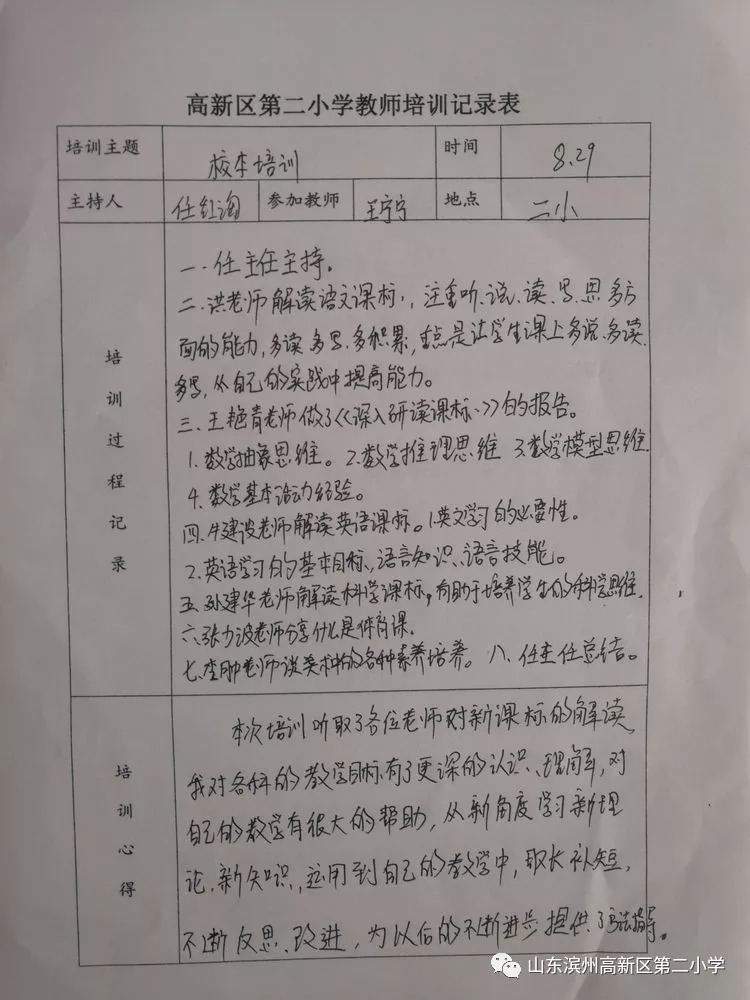 高新区第二小学教师培训记录表
培训主题 校本培训 时间 8.29
主持人 任红海 参加教师 王宁宁 地点 二小
培训过程记录
一.任主任主持。
二.洪老师解读语文课标,注重听、说、读、写、思多方
面的能力,多读多写.多积累,重点是让学生课上多说、多读、
多写,从自己的实践中提高能力。
三、王艳青老师做了《深入研读课标》的报告。
1.数学抽象思维。2.数学推理思维 3.数学模型思维.
4.数学基本活动经验。
四.牛建波老师解读英语课标。1.英文学习的必要性。
2.英语学习的基本目标、语言知识、语言技能。
五.孙建华老师解读科学课标,有助于培养学生的科学思维.
六.张力波老师分享什么是体育课.
七.李肿老师谈美术的各种素养培养。八、任主任总结。
培训心得
本次培训听取了各位老师对新课标的解读,
我对各科的教学目标有了更深的认识、理解,对
自己的教学有很大的帮助,从新角度学习新理
论、新知识,运用到自己的教学中,取长补短,
不断反思、改进,为以后的不断进步提供了方法指导。
山东滨州高新区第二小学